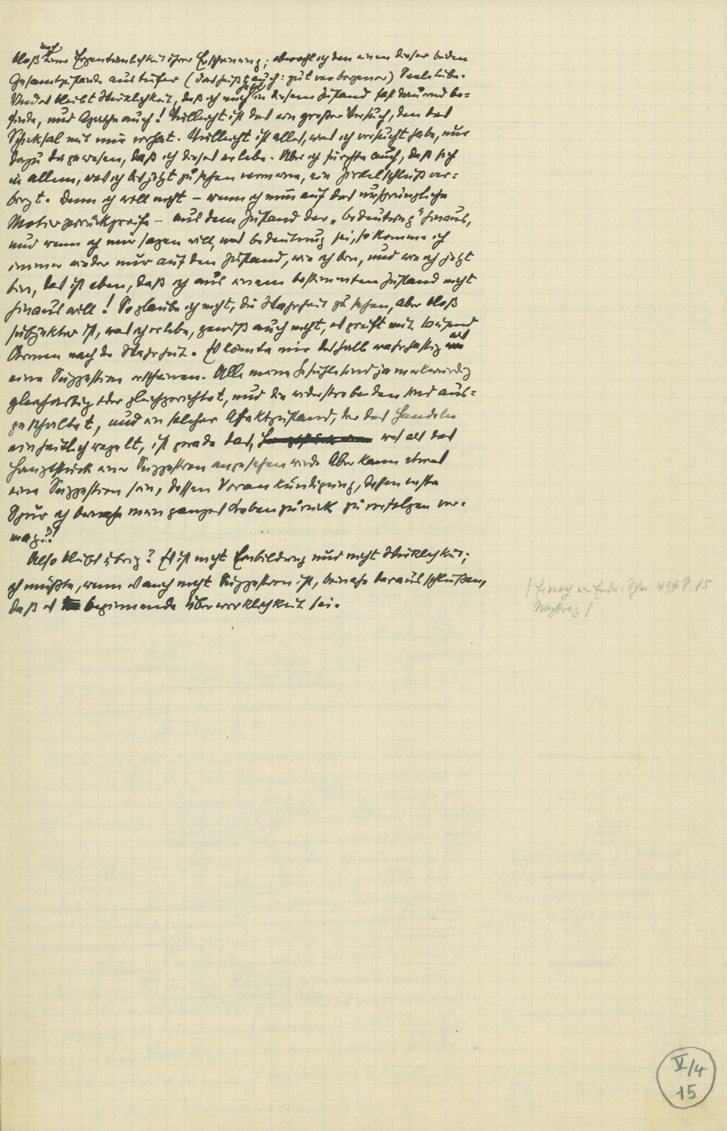 bloß noch eine Eigentümlichkeit ihrer Erscheinung; obwohl ich den einen dieser beiden
Gesamtzustände aus tiefer (das heißt auch: zul verbogener) Seele liebe.
Und es bleibt Wirklichkeit, daß ich mich jetzt in diesem Zustand fast dauernd be-
finde, und Agathe auch! Vielleicht ist das ein großer Versuch, den das
Schicksal mit mir vorhat. Vielleicht ist alles, was ich versucht habe, nur
dazu dagewesen, daß ich dieses erlebe. Aber ich fürchte auch, daß sich
in allem, was ich bis jetzt zu sehen vermeine, ein Zirkelschluß ver-
birgt. Denn ich will nicht – wenn ich nun auf das ursprüngliche
Motiv zurückgreife – aus dem Zustand der „Bedeutung" hinaus,
und wenn ich mir sagen will, was Bedeutung sei, so komme ich
immer wieder nur auf den Zustand, wo ich bin, und wie ich jetzt
bin, das ist eben, daß ich aus einem bestimmten Zustand nicht
hinaus will! So glaube ich nicht, die Wahrheit zu sehen, aber bloß
subjektiv ist, was ich erlebe, gewiß auch nicht, es greift mit tausend
Armen nach der Wahrheit. Es könnte mir deshalb wahrhaftig als
eine Suggestion erscheinen. Alle meine Gefühle sind ja merkwürdig
gleichartig oder gleichgerichtet, und die widerstrebenden sind aus-
geschaltet, und ein solcher Affektzustand, der das Handeln
einheitlich regelt, ist gerade das, was als das
Hauptstück einer Suggestion angesehen wird. Aber kann etwas
eine Suggestion sein, dessen Vorankündigung, dessen erste
Spur ich beinahe mein ganzes Leben zurück zu verfolgen ver-
mag?!
Also bleibt übrig? Es ist nicht Einbildung und nicht Wirklichkeit;
ich müßte, wenn es auch nicht Suggestion ist, beinahe daraus schließen,
daß es beginnende Überwirklichkeit sei.
S. 15
V/4
15